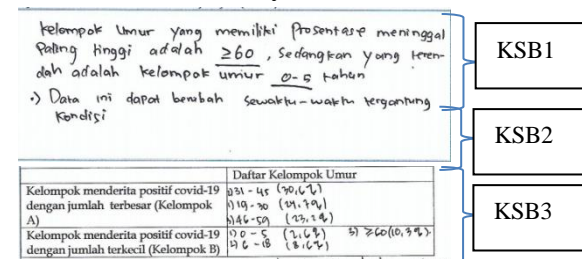 kelompok Umur yang memiliki Prosentase meninggal
Paling tinggi adalah ≥60, Sedangkan yang teren-
dah adalah kelompok umur 0-5 tahun
•) Data ini dapat berubah sewaktu-waktu tergantung
Kondisi
KSB1
KSB2
KSB3
Daftar Kelompok Umur
Kelompok menderita positif covid-19
dengan jumlah terbesar (Kelompok
A)
1) 31 - 45 (30,6%)
1) 19 - 30 (24,7%)
3) 46 - 59 (23,2%)
Kelompok menderita positif covid-19
dengan jumlah terkecil (Kelompok B)
1) 0 - 5 (2,6%) 3) ≥60 (10,3%)
2) 6 - 18 (8,6%)